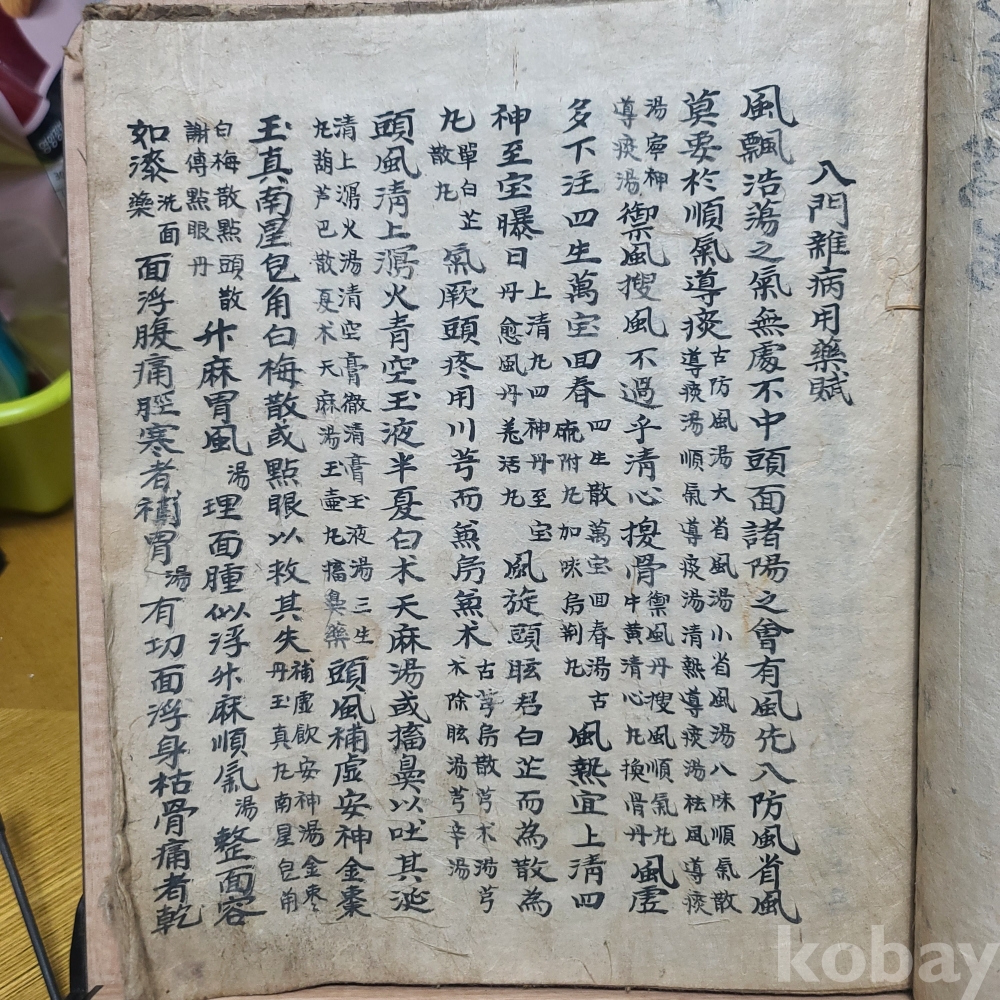 入門雜病用藥賦
風飄浩蕩之氣無處不中頭面諸陽之會有風先入防風省風
莫要於順氣導痰古防風湯大省風湯小省風湯八味順氣散導痰湯順氣導痰湯清熱導痰湯祛風導痰
湯寧神導痰湯禦風搜風不過乎清心換骨禦風丹搜風順氣丸牛黃清心丸換骨丹風虛
多下注四生萬宝回春四生散萬宝回春湯古硫附丸加味房荊丸風熱宜上清四
神至宝曝日上清丸四神丹至宝丹愈風丹羌活丸風旋頭眩君白芷而為散為
丸單白芷散丸氣厥頭疼用川芎而兼房兼术古芎房散芎术湯芎术除眩湯芎辛湯
頭風淸上瀉火青空玉液半夏白术天麻湯或搐鼻以吐其涎
清上瀉火湯清空膏徹清膏玉液湯三生丸葫芦巴散夏术天麻湯玉壷丸搐鼻藥頭風補虛安神金棗
玉真南星包角白梅散或點眼以救其失補虛飮安神湯金棗丹玉真丸南星包角
白梅散點頭散謝傳點眼丹升麻胃風湯理面腫似浮升麻順氣湯整面容
如漆洗面藥面浮腹痛脛寒者補胃湯有切面浮身枯骨痛者乾
kobay